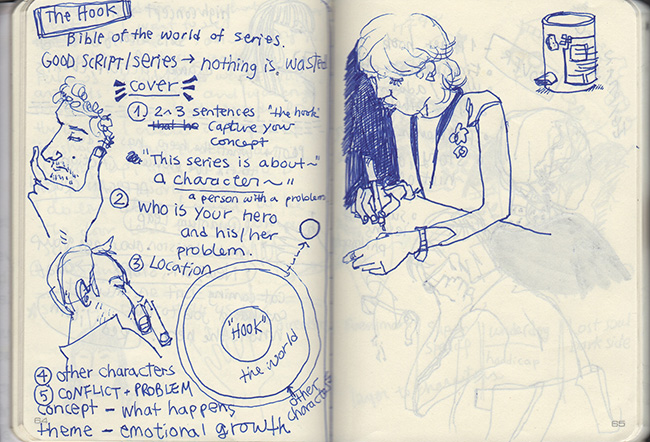 The Hook
Bible of the world of series.
GOOD SCRIPT/series → nothing is wasted
cover
① 2~3 sentences "the hook"
capture your
concept
"This series is about~
a character~"
a person with a problem
② who is your hero
and his/her
problem.
③ LOCATION
"HOOK"
the world
other
characters
④ other characters
⑤ CONFLICT + PROBLEM
concept - what happens
theme - emotional growth
64
65